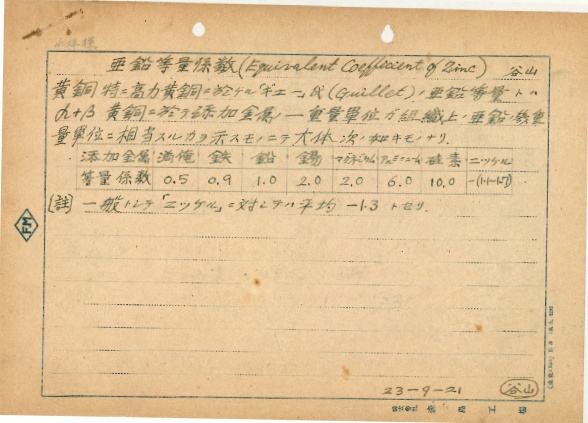 亜鉛等量係数 (Equivalent Coefficient of Zinc) 谷山
黄銅特ニ高力黄銅ニ於ケル「ギエー」氏 (Guillet) ノ亜鉛等量トハ
α+β 黄銅ニ於テ添加金属ノ一重量単位ガ組織上ノ亜鉛ノ幾重
量単位ニ相当スルカヲ示スモノニテ大体次ノ如キモノナリ.
添加金属 満俺 鉄 鉛 錫 マグネシウム アルミニューム 硅素 ニッケル
等量係数 0.5 0.9 1.0 2.0 2.0 6.0 10.0 -(1.1~1.5)
[註] 一般トシテ「ニッケル」ニ対シテハ平均 -1.3 トセリ.
FM
23-9-21 谷山
株式会社